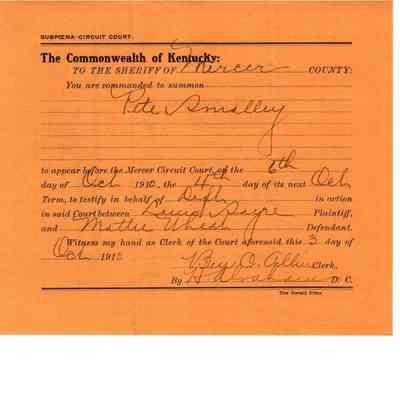 SUBPŒNA-CIRCUIT COURT.
The Commonwealth of Kentucky:
TO THE SHERIFF OF Mercer COUNTY:
You are commanded to summon
Pete Smalley
to appear before the Mercer Circuit Court, on the 6th
day of Oct 1910, the 4th day of its next Oct
Term, to testify in behalf of Deft in action
in said Court between Plaintiff,
and Mattie Defendant.
Witness my hand as Clerk of the Court aforesaid, this 3 day of
Oct 191
Ben Clerk,
By D. C.